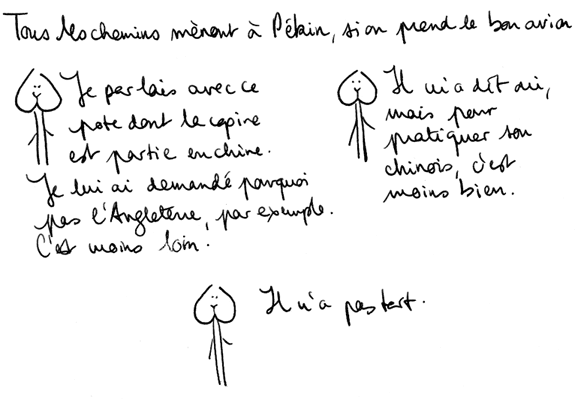 Tous les chemins mènent à Pékin, si on prend le bon avion
Je parlais avec ce
pote dont la copine
est partie en chine.
Je lui ai demandé pourquoi
pas l'Angleterre, par exemple.
C'est moins loin.
Il m'a dit oui,
mais pour
pratiquer son
chinois, c'est
moins bien.
Il n'a pas tort.